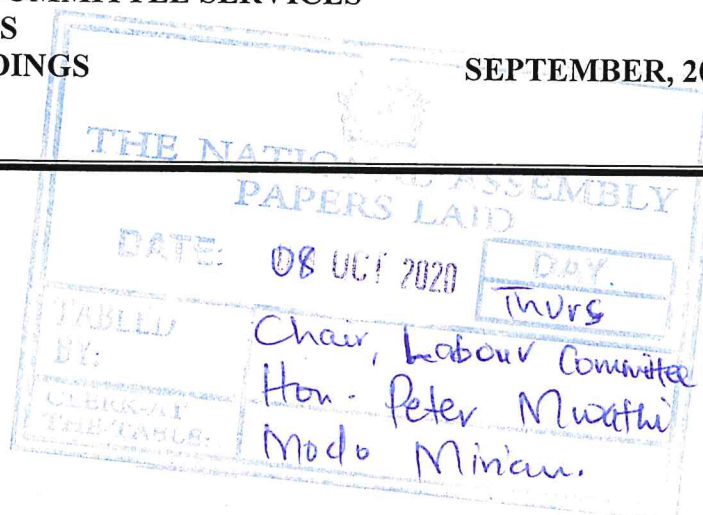 COMMITTEE SERVICES
S
DINGS SEPTEMBER, 20
THE NATIONAL ASSEMBLY
PAPERS LAID
DATE: 08 OCT 2020 DAY.
Thurs
TABLED BY: Chair, Labour Committee
Hon. Peter Mwathi
CLERK-AT THE-TABLE: